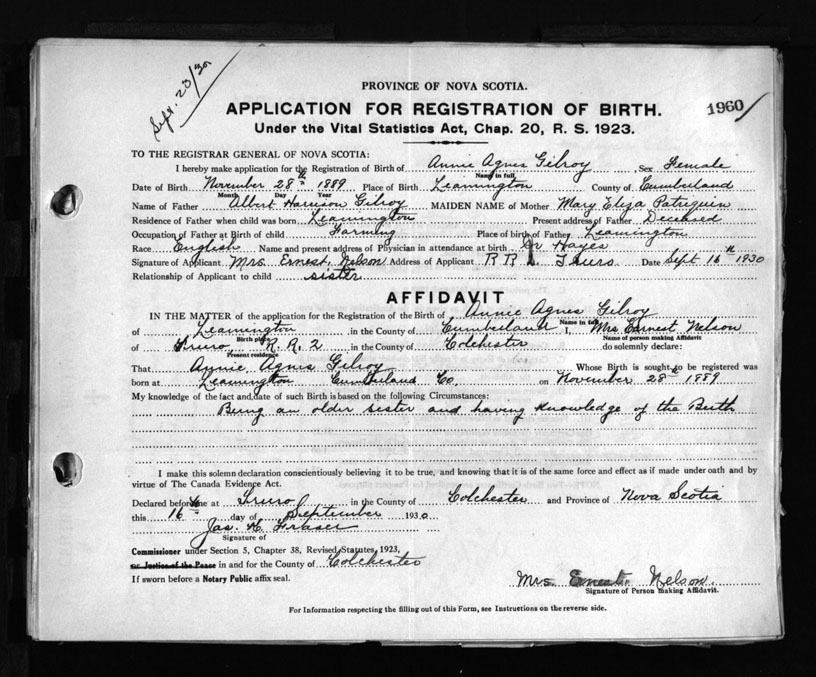 Sept. 23/30
PROVINCE OF NOVA SCOTIA.
APPLICATION FOR REGISTRATION OF BIRTH.
1960
Under the Vital Statistics Act, Chap. 20, R. S. 1923.
TO THE REGISTRAR GENERAL OF NOVA SCOTIA:
I hereby make application for the Registration of Birth of Annie Agnes Gilroy Sex Female
Name in full
Date of Birth November 28th 1889 Place of Birth Leamington County of Cumberland
Month Day Year
Name of Father Albert Harrison Gilroy MAIDEN NAME of Mother Mary Eliza Patriquin
Residence of Father when child was born Leamington Present address of Father Deceased
Occupation of Father at Birth of child Farming Place of birth of Father Leamington
Race English Name and present address of Physician in attendance at birth Dr Hayes
Signature of Applicant Mrs. Ernest Nelson Address of Applicant R R Truro Date Sept 16th 1930
Relationship of Applicant to child sister
AFFIDAVIT
IN THE MATTER of the application for the Registration of the Birth of Annie Agnes Gilroy
Name in full
of Leamington in the County of Cumberland I, Mrs Ernest Nelson
Birth place Name of person making Affidavit
of Truro R. R. 2 in the County of Colchester do solemnly declare:
Present residence
That Annie Agnes Gilroy Whose Birth is sought to be registered was
born at Leamington Cumberland Co. on November 28th 1889
My knowledge of the fact and date of such Birth is based on the following Circumstances:
Being an older sister and having knowledge of the Birth
I make this solemn declaration conscientiously believing it to be true, and knowing that it is of the same force and effect as if made under oath and by
virtue of The Canada Evidence Act.
Declared before me at Truro in the County of Colchester and Province of Nova Scotia
this 16th day of September 1930
Jas. H. Fraser
Signature of
Commissioner under Section 5, Chapter 38, Revised Statutes, 1923,
or Justice of the Peace in and for the County of Colchester
If sworn before a Notary Public affix seal.
Mrs. Ernest Nelson
Signature of Person making Affidavit.
For Information respecting the filling out of this Form, see Instructions on the reverse side.